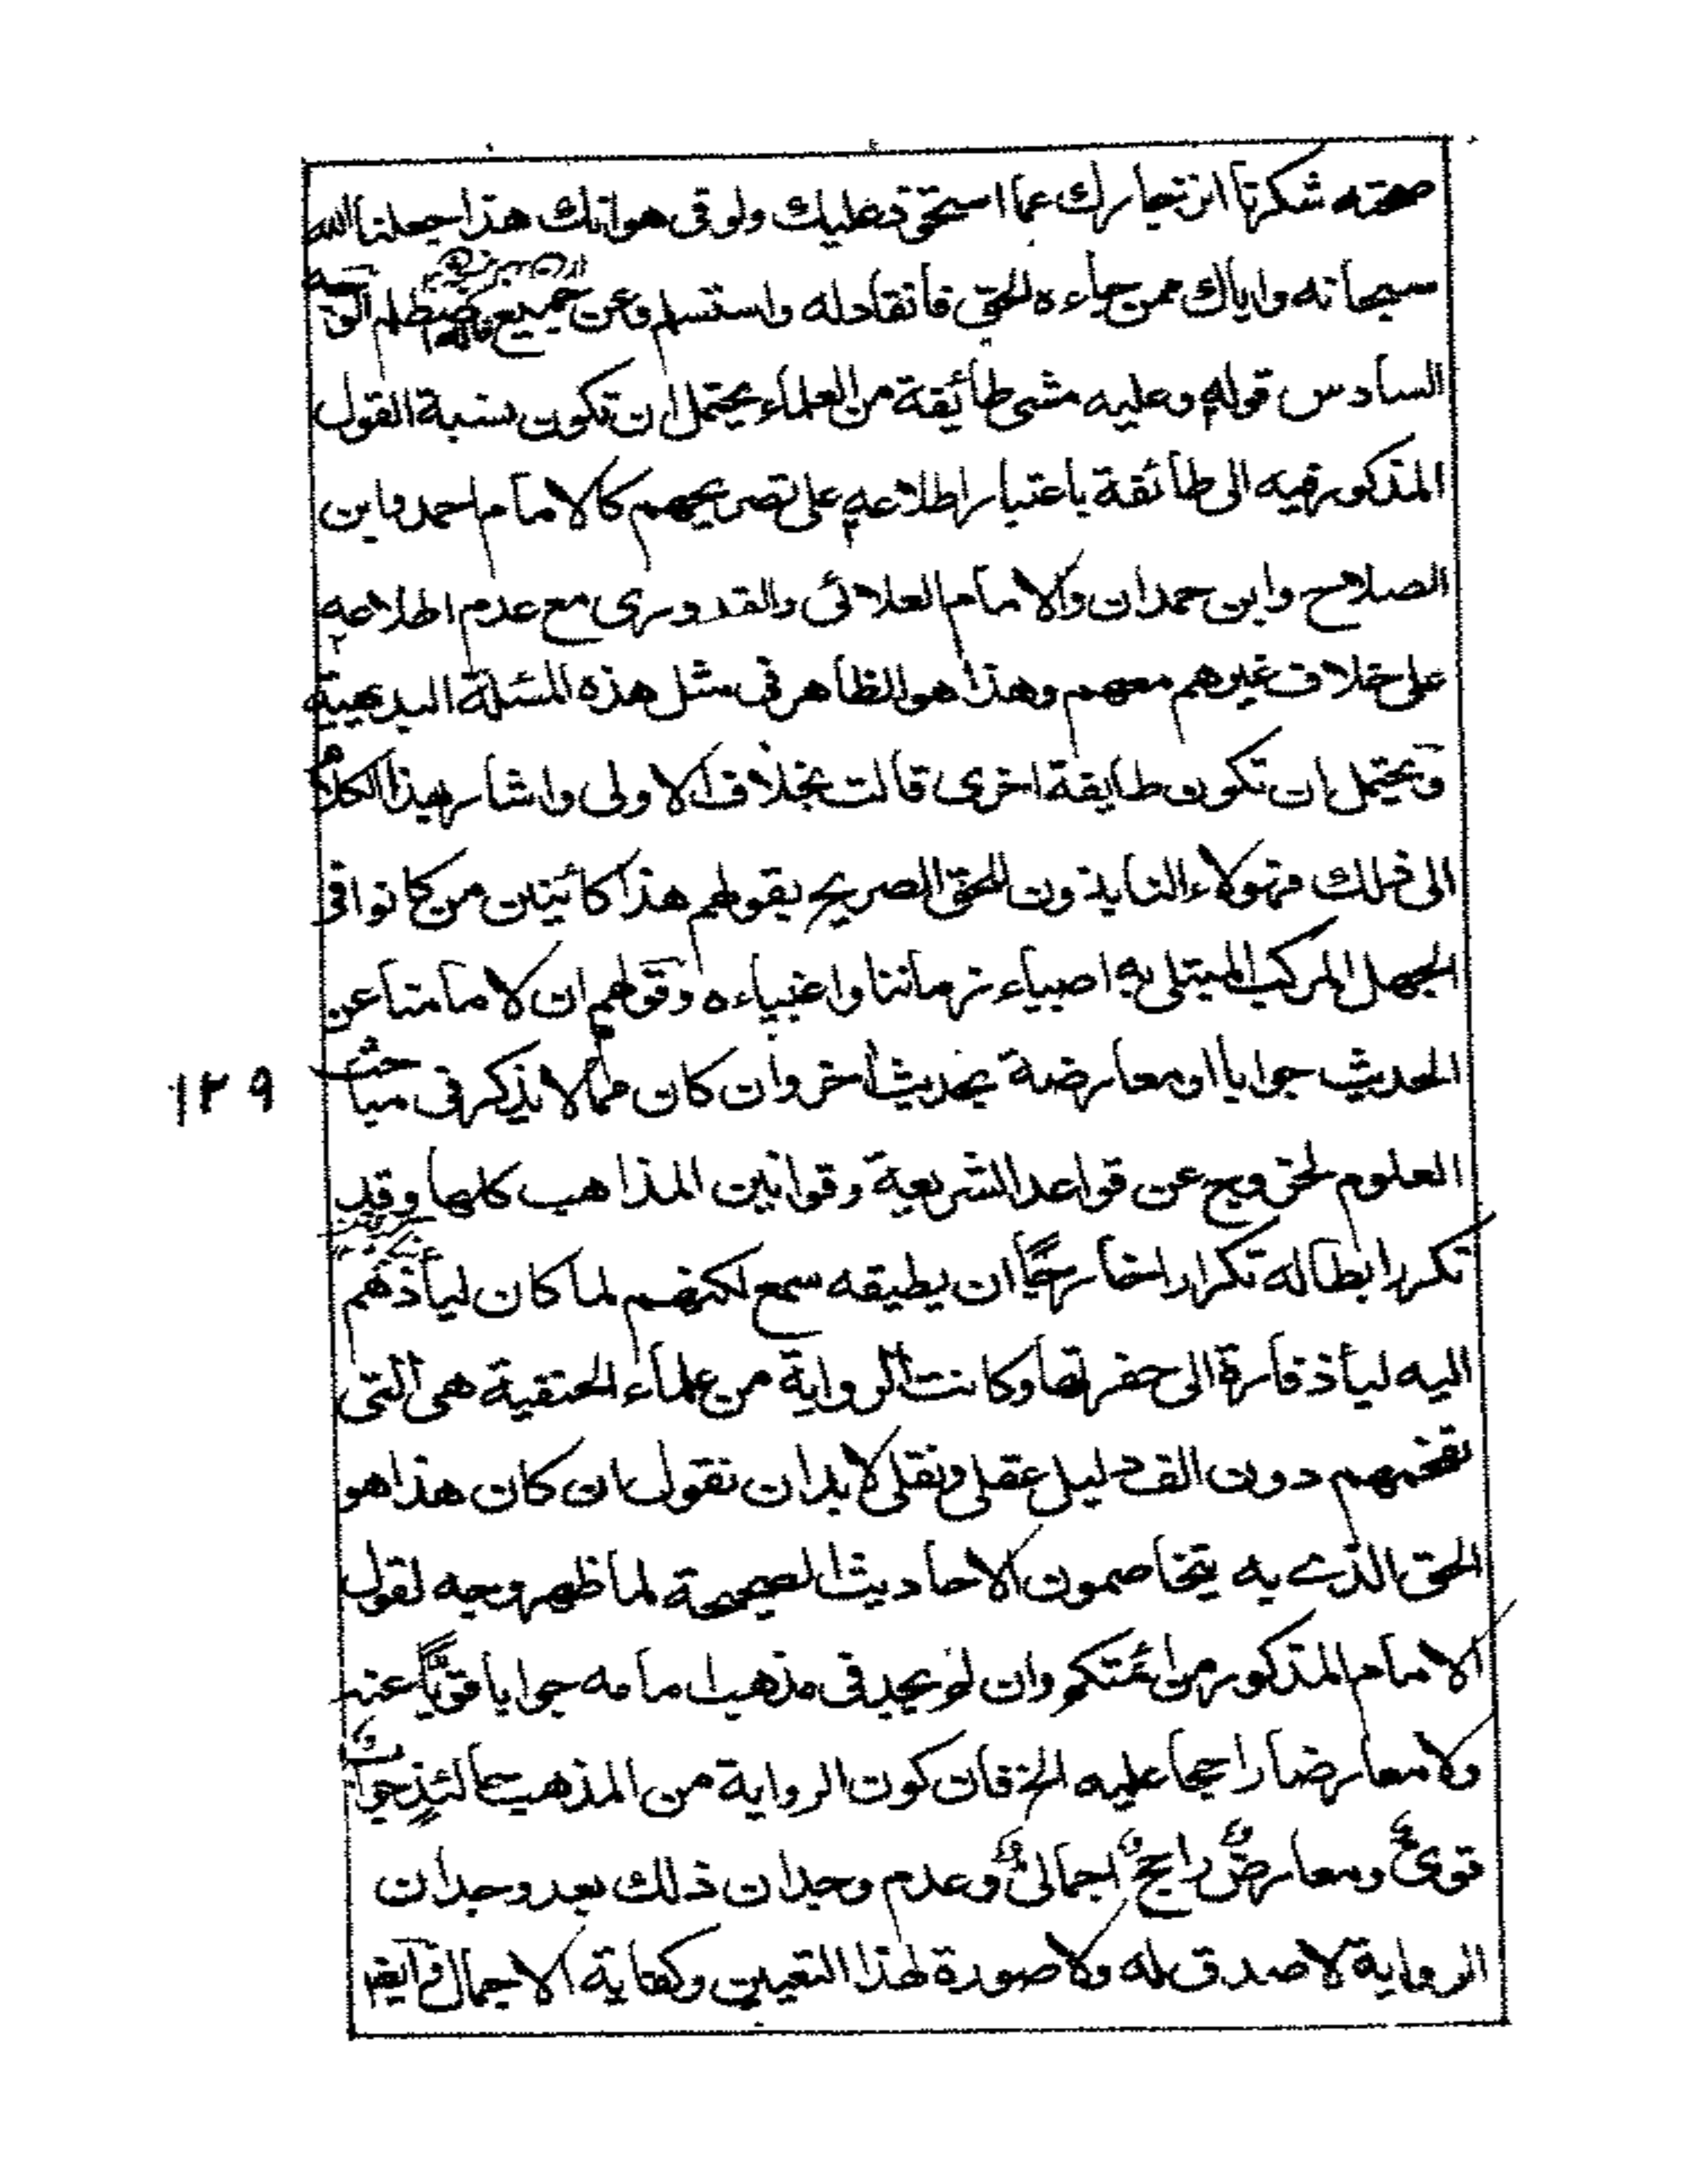 صحته شكرنا انزجارك عما استحق عليك ولو فى هوانك هذا جعلنا الله
سبحانه واياك ممن جاءه الحق فانقاد له واستسلم وعن جميع
السادس قوله وعليه مشى طائفة من العلماء يحتمل ان تكون نسبة القول
المذكور فيه الى طائفة باعتبار اطلاعه على تصريحهم كالامام احمد وابن
الصلاح وابن حمدان والامام العلائى والقدورى مع عدم اطلاعه
على خلاف غيرهم معهم وهذا هو الظاهر فى مثل هذه المسئلة البديهية
ويحتمل ان تكون طايفة اخرى قالت بخلاف الاولى واشار بهذا الكلام
الى ذلك فهولاء النابذون للحق الصريح بقولهم هذا كائنين من كانوا فى
الجهل المركب المبتلى به اصبياء زماننا واغبياءه وقولهم ان لامامنا عن
الحديث جوابا او معارضة بحديث اخر وان كان مما لا يذكر فى مباحث
العلوم لخروج عن قواعد الشريعة وقوانين المذاهب كلها وقد
تكرر ابطاله تكرارا خارجًا ان يطيقه سمع لكنهم لما كان ليأذهم
اليه ليأذ فارة الى حفرتها وكانت الرواية من علماء الحنفية هى التى
تفحمهم دون الف دليل عقلى ونقلى لا بد ان نقول ان كان هذا هو
الحق الذى به يتخاصمون الاحاديث الصحيحة لما ظهر وجه لقول
الامام المذكور من ائمتكم وان لم يجد فى مذهب امامه جوابا قويًّا عنه
ولا معارضا راجحا عليه الخ فان كون الرواية من المذهب حالئذٍ جواب
قوىٌّ ومعارضٌ راجحٌ اجمالىٌّ وعدم وجدان ذلك بعد وجدان
الرواية لا صدق له ولا صورة لهذا التعيين وكفاية الاجمال فى
١٢٩